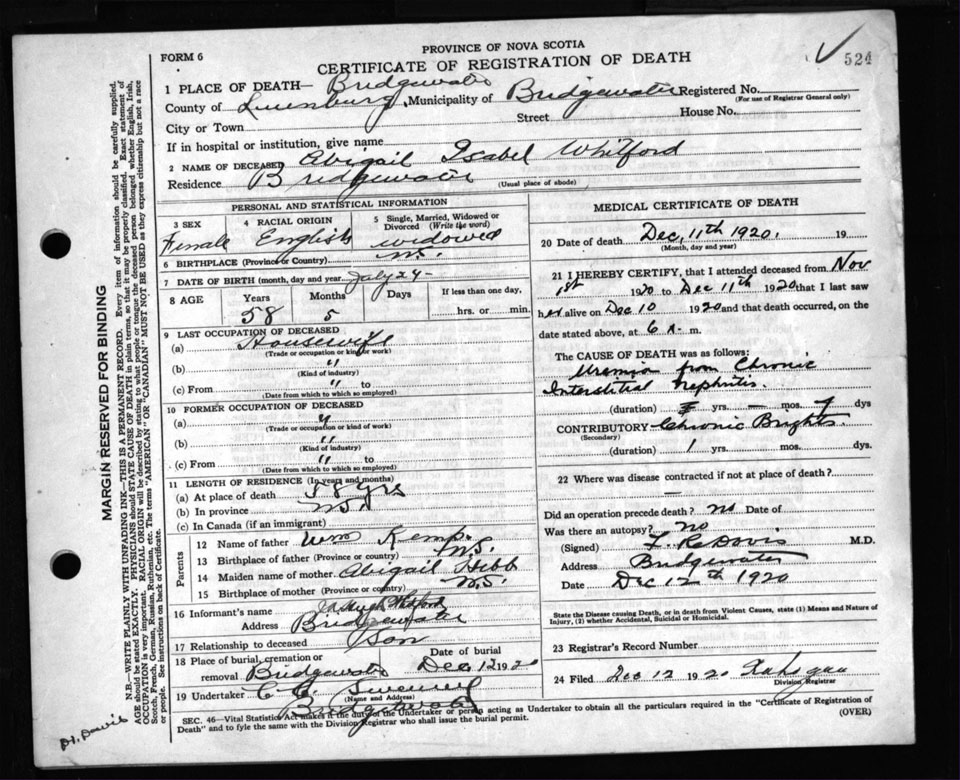 PROVINCE OF NOVA SCOTIA
FORM 6
CERTIFICATE OF REGISTRATION OF DEATH
524
1 PLACE OF DEATH— Bridgewater
Registered No.
(For use of Registrar General only)
County of Lunenburg, Municipality of Bridgewater
Street House No.
City or Town
If in hospital or institution, give name
2 NAME OF DECEASED Abigail Isabel Whitford
Residence Bridgewater
(Usual place of abode)
PERSONAL AND STATISTICAL INFORMATION
3 SEX
Female
4 RACIAL ORIGIN
English
5 Single, Married, Widowed or Divorced (Write the word)
widowed
6 BIRTHPLACE (Province or Country) N.S.
7 DATE OF BIRTH (month, day and year) July 24-
8 AGE Years Months Days If less than one day,
58 5 hrs. or min.
9 LAST OCCUPATION OF DECEASED
(a) Housewife
(Trade or occupation or kind of work)
(b) "
(Kind of industry)
(c) From " to
(Date from which to which so employed)
10 FORMER OCCUPATION OF DECEASED
(a) "
(Trade or occupation or kind of work)
(b) "
(Kind of industry)
(c) From " to
(Date from which to which so employed)
11 LENGTH OF RESIDENCE (In years and months)
(a) At place of death 58 yrs
(b) In province N.S.
(c) In Canada (if an immigrant)
Parents
12 Name of father Wm Kemp.
13 Birthplace of father (Province or country) N.S.
14 Maiden name of mother Abigail Hebb
15 Birthplace of mother (Province or country) N.S.
16 Informant's name Hugh Whitford
Address Bridgewater
17 Relationship to deceased Son
18 Place of burial, cremation or removal Bridgewater
Date of burial Dec 12 1920
19 Undertaker Sweeney
(Name and Address)
Bridgewater
MEDICAL CERTIFICATE OF DEATH
20 Date of death Dec, 11th 1920. 19
(Month, day and year)
21 I HEREBY CERTIFY, that I attended deceased from Nov
1st 1920 to Dec 11th 1920 that I last saw
her alive on Dec 10 1920 and that death occurred, on the
date stated above, at 6 A. m.
The CAUSE OF DEATH was as follows:
Uremia from Chronic
Interstitial Nephritis.
(duration) yrs. — mos. 7 dys
CONTRIBUTORY Chronic Brights.
(Secondary)
(duration) 1 yrs. mos. dys.
22 Where was disease contracted if not at place of death?
—
Did an operation precede death? no Date of
Was there an autopsy? no
(Signed) F. R. Davis M.D.
Address Bridgewater
Date Dec 12th 1920
State the Disease causing Death, or in death from Violent Causes, state (1) Means and Nature of
Injury, (2) whether Accidental, Suicidal or Homicidal.
23 Registrar's Record Number
24 Filed Dec 12 1920
Division Registrar
SEC. 46—Vital Statistics Act makes it the duty of the Undertaker or person acting as Undertaker to obtain all the particulars required in the "Certificate of Registration of
Death" and to fyle the same with the Division Registrar who shall issue the burial permit.
(OVER)
MARGIN RESERVED FOR BINDING
N.B.—WRITE PLAINLY WITH UNFADING INK—THIS IS A PERMANENT RECORD. Every item of information should be carefully supplied.
AGE should be stated EXACTLY. PHYSICIANS should STATE CAUSE OF DEATH in plain terms, so that it may be properly classified. Exact statement of
OCCUPATION is very important. RACIAL ORIGIN will be described by stating to what people or tongue the deceased person belonged whether English, Irish,
Scotch, French, German, Russian, Ruthenian, etc. The terms "AMERICAN" or "CANADIAN" MUST NOT BE USED as they express citizenship but not a race
or people. See instructions on back of Certificate.
Dr. Davis